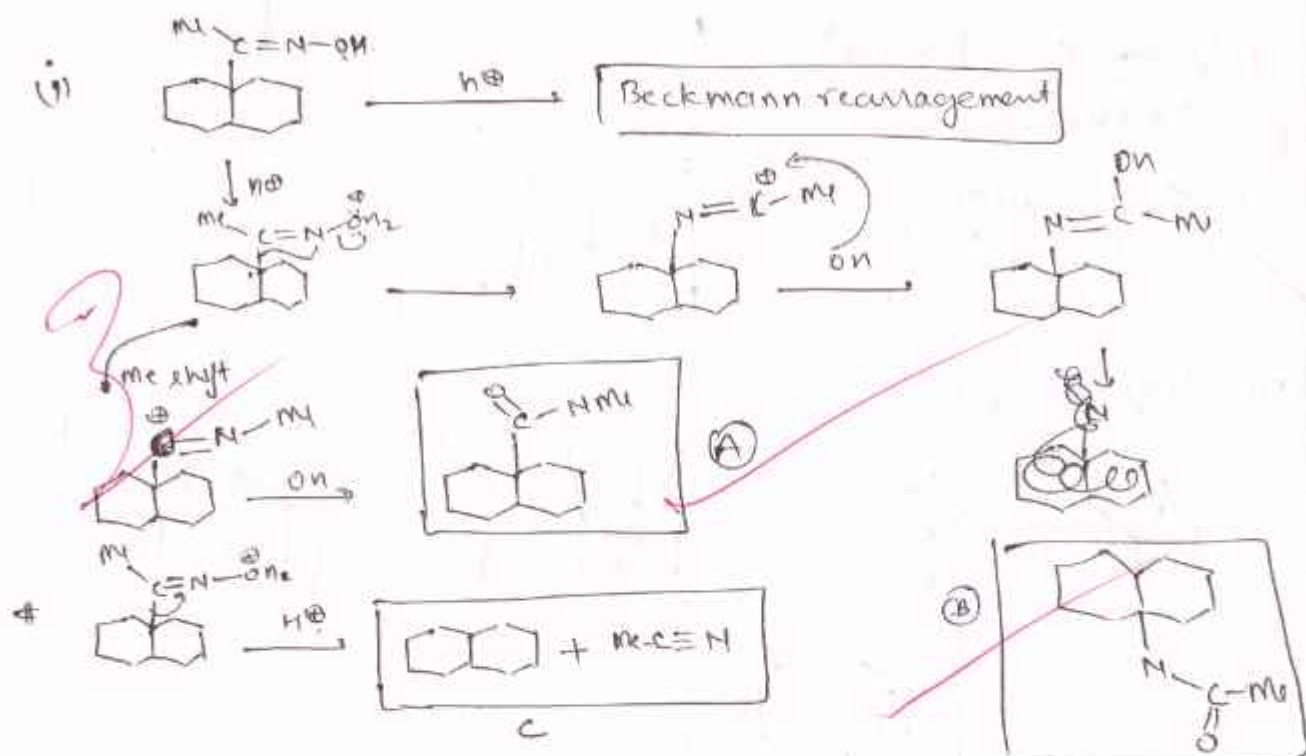 Me
C=N-OH
(i)
H⊕
Beckmann rearragement
H⊕
Me
C=N-OH2
⊕
N=C-Me
⊕
OH
OH
N=C-Me
Me shift
⊕
C=N-Me
OH
O
C-NMe
A
Me
C=N-OH2
⊕
H⊕
+ Me-C≡N
C
B
N-C-Me
O